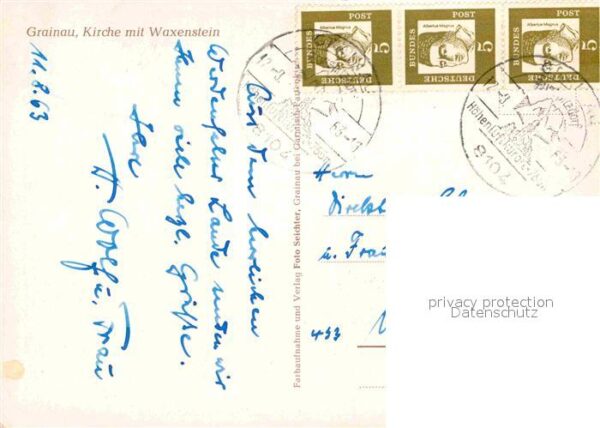 Grainau, Kirche mit Waxenstein
11.8.63
Aus dem herrlichen
Werdenfelser Lande senden wir
Ihnen viele herzl. Grüße.
Ihre
H. Wolf u. Frau
Farbaufnahme und Verlag Foto Seichter, Grainau bei Garmisch-Partenkirchen
DEUTSCHE BUNDES POST
Albertus Magnus
5
DEUTSCHE BUNDES POST
Albertus Magnus
5
DEUTSCHE BUNDES POST
Albertus Magnus
5
8107
Herrn
u. Frau
433
privacy protection
Datenschutz